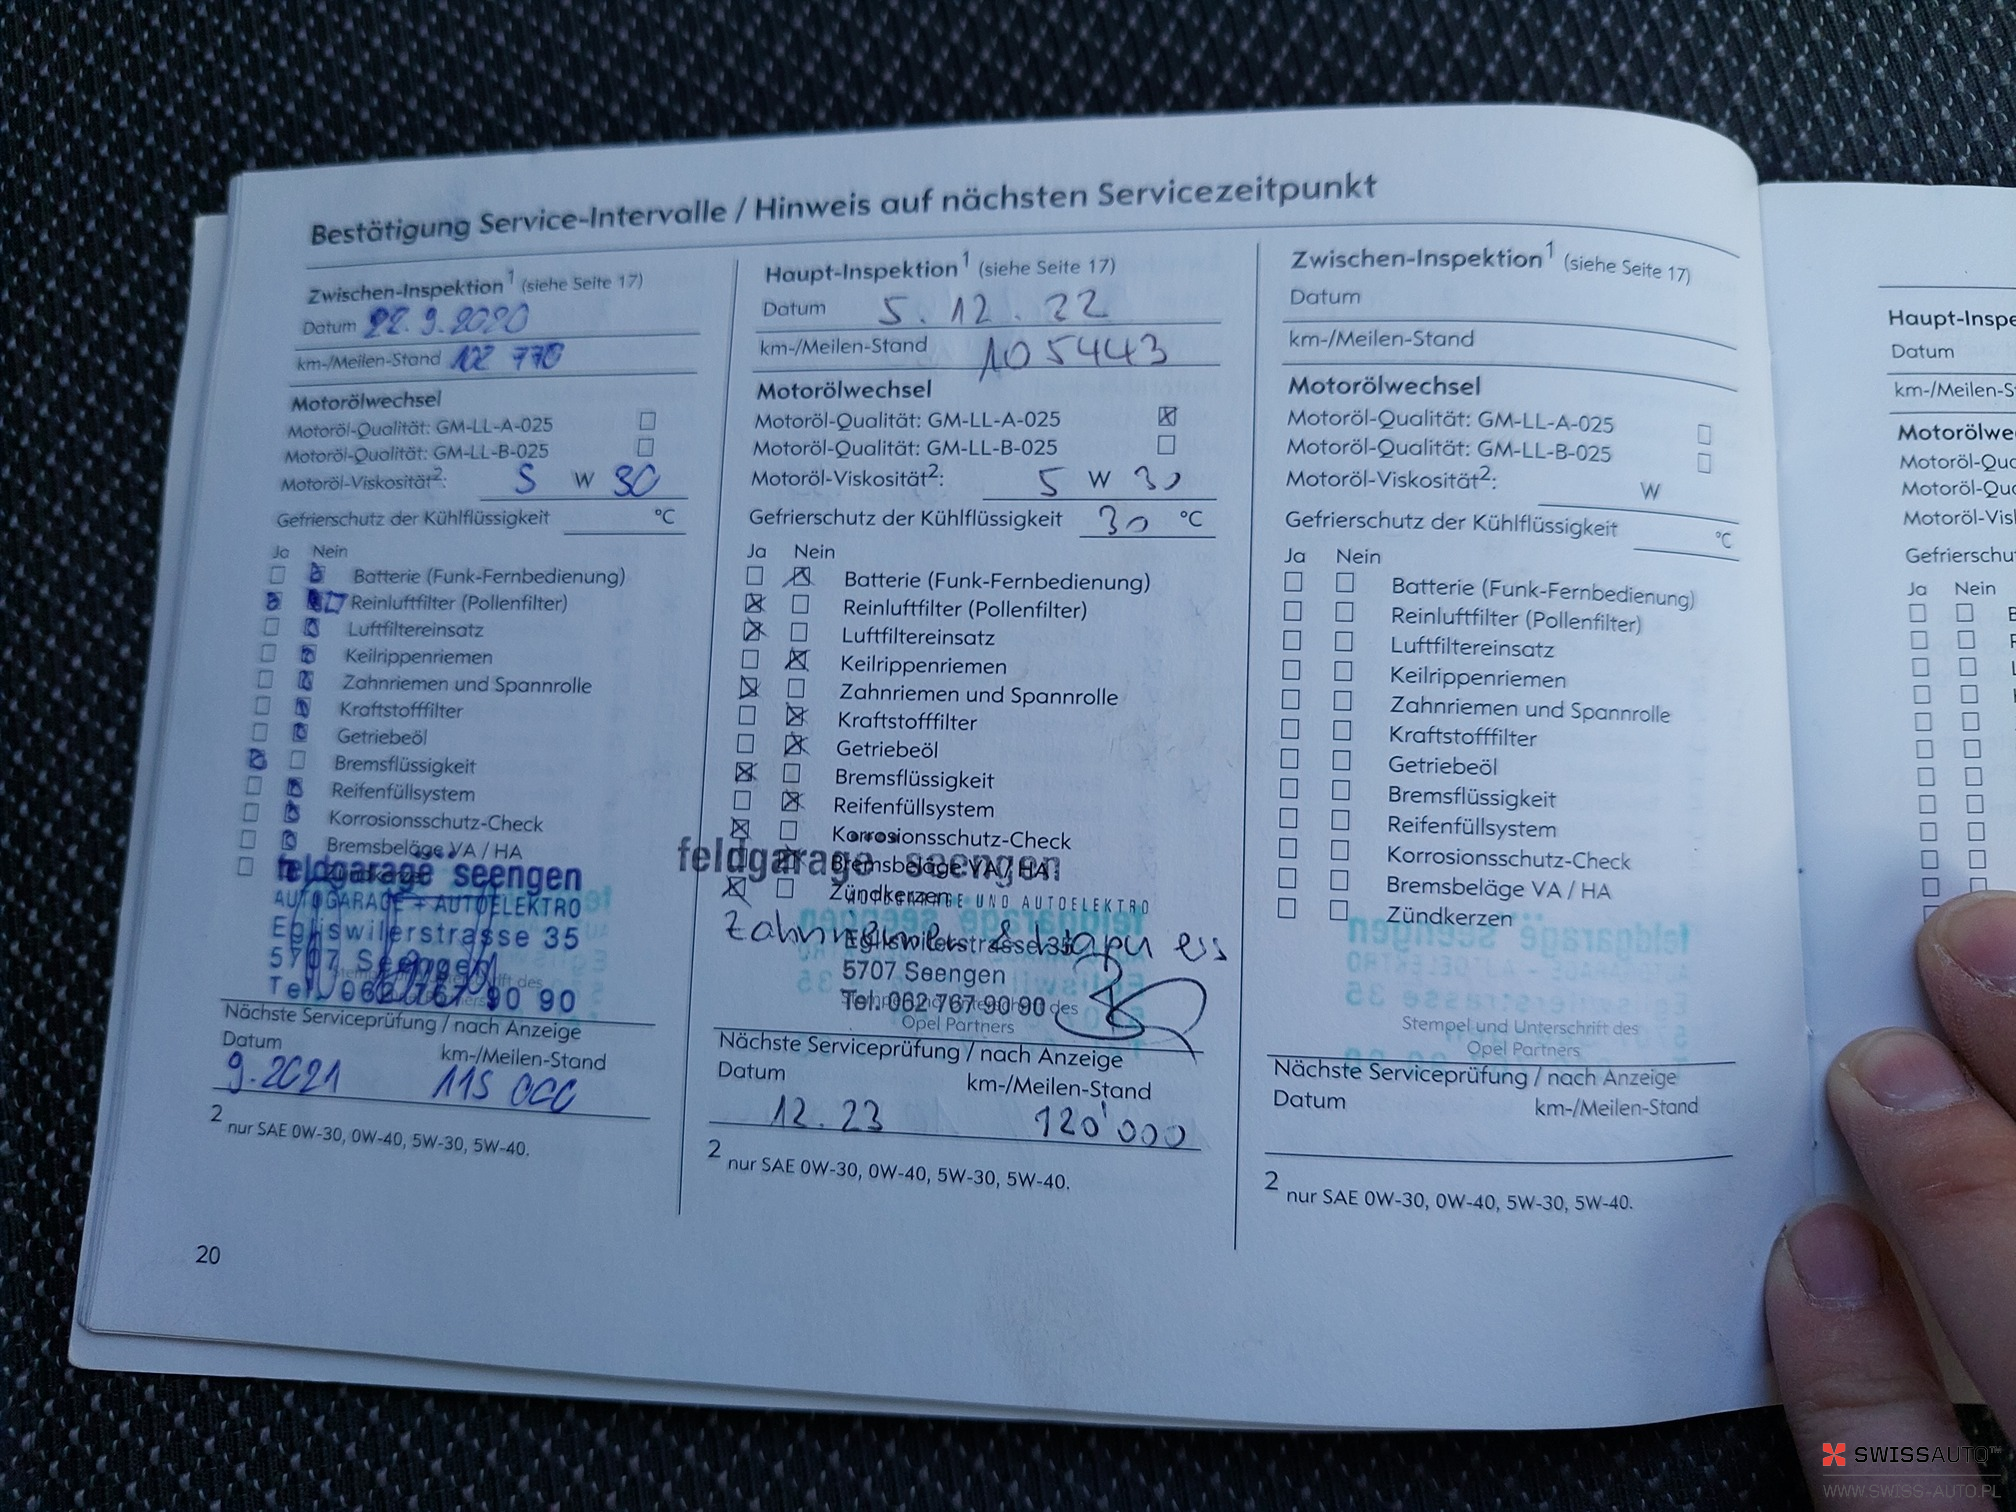 Bestätigung Service-Intervalle / Hinweis auf nächsten Servicezeitpunkt
Zwischen-Inspektion1 (siehe Seite 17)
Datum 22.9.2020
km-/Meilen-Stand 102 770
Motorölwechsel
Motoröl-Qualität: GM-LL-A-025
Motoröl-Qualität: GM-LL-B-025
Motoröl-Viskosität2: 5 W 30
Gefrierschutz der Kühlflüssigkeit °C
Ja Nein
Batterie (Funk-Fernbedienung)
Reinluftfilter (Pollenfilter)
Luftfiltereinsatz
Keilrippenriemen
Zahnriemen und Spannrolle
Kraftstofffilter
Getriebeöl
Bremsflüssigkeit
Reifenfüllsystem
Korrosionsschutz-Check
Bremsbeläge VA / HA
feldgarage seengen
AUTOGARAGE + AUTOELEKTRO
Egliswilerstrasse 35
5707 Seengen
Tel. 062 767 90 90
Nächste Serviceprüfung / nach Anzeige
Datum km-/Meilen-Stand
9.2021 115 000
2 nur SAE 0W-30, 0W-40, 5W-30, 5W-40.
20
Haupt-Inspektion1 (siehe Seite 17)
Datum 5.12.22
km-/Meilen-Stand 105443
Motorölwechsel
Motoröl-Qualität: GM-LL-A-025
Motoröl-Qualität: GM-LL-B-025
Motoröl-Viskosität2: 5 W 30
Gefrierschutz der Kühlflüssigkeit 30 °C
Ja Nein
Batterie (Funk-Fernbedienung)
Reinluftfilter (Pollenfilter)
Luftfiltereinsatz
Keilrippenriemen
Zahnriemen und Spannrolle
Kraftstofffilter
Getriebeöl
Bremsflüssigkeit
Reifenfüllsystem
Korrosionsschutz-Check
Bremsbeläge VA / HA
feldgarage seengen
Zündkerzen
AUTOGARAGE UND AUTOELEKTRO
Egliswilerstrasse 35
5707 Seengen
Tel. 062 767 90 90
des
Opel Partners
Nächste Serviceprüfung / nach Anzeige
Datum km-/Meilen-Stand
12.23 120'000
2 nur SAE 0W-30, 0W-40, 5W-30, 5W-40.
Zwischen-Inspektion1 (siehe Seite 17)
Datum
km-/Meilen-Stand
Motorölwechsel
Motoröl-Qualität: GM-LL-A-025
Motoröl-Qualität: GM-LL-B-025
Motoröl-Viskosität2: W
Gefrierschutz der Kühlflüssigkeit °C
Ja Nein
Batterie (Funk-Fernbedienung)
Reinluftfilter (Pollenfilter)
Luftfiltereinsatz
Keilrippenriemen
Zahnriemen und Spannrolle
Kraftstofffilter
Getriebeöl
Bremsflüssigkeit
Reifenfüllsystem
Korrosionsschutz-Check
Bremsbeläge VA / HA
Zündkerzen
Stempel und Unterschrift des
Opel Partners
Nächste Serviceprüfung / nach Anzeige
Datum km-/Meilen-Stand
2 nur SAE 0W-30, 0W-40, 5W-30, 5W-40.
Haupt-Inspe
Datum
km-/Meilen-S
Motorölwe
Motoröl-Qua
Motoröl-Qu
Motoröl-Vis
Gefrierschu
Ja Nein
SWISSAUTO™
WWW.SWISS-AUTO.PL